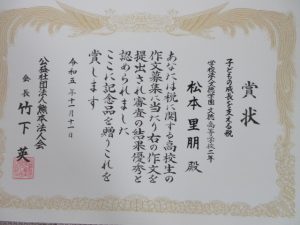 賞状
子どもの成長を支える税
学校法人文徳学園 文徳高等学校二年
松本里朋 殿
あなたは税に関する高校生の
作文募集に当たり右の作文を
提出され審査の結果優秀と
認められました
ここに記念品を贈りこれを
賞します
令和五年十一月十一日
公益社団法人熊本法人会
会長 竹下英